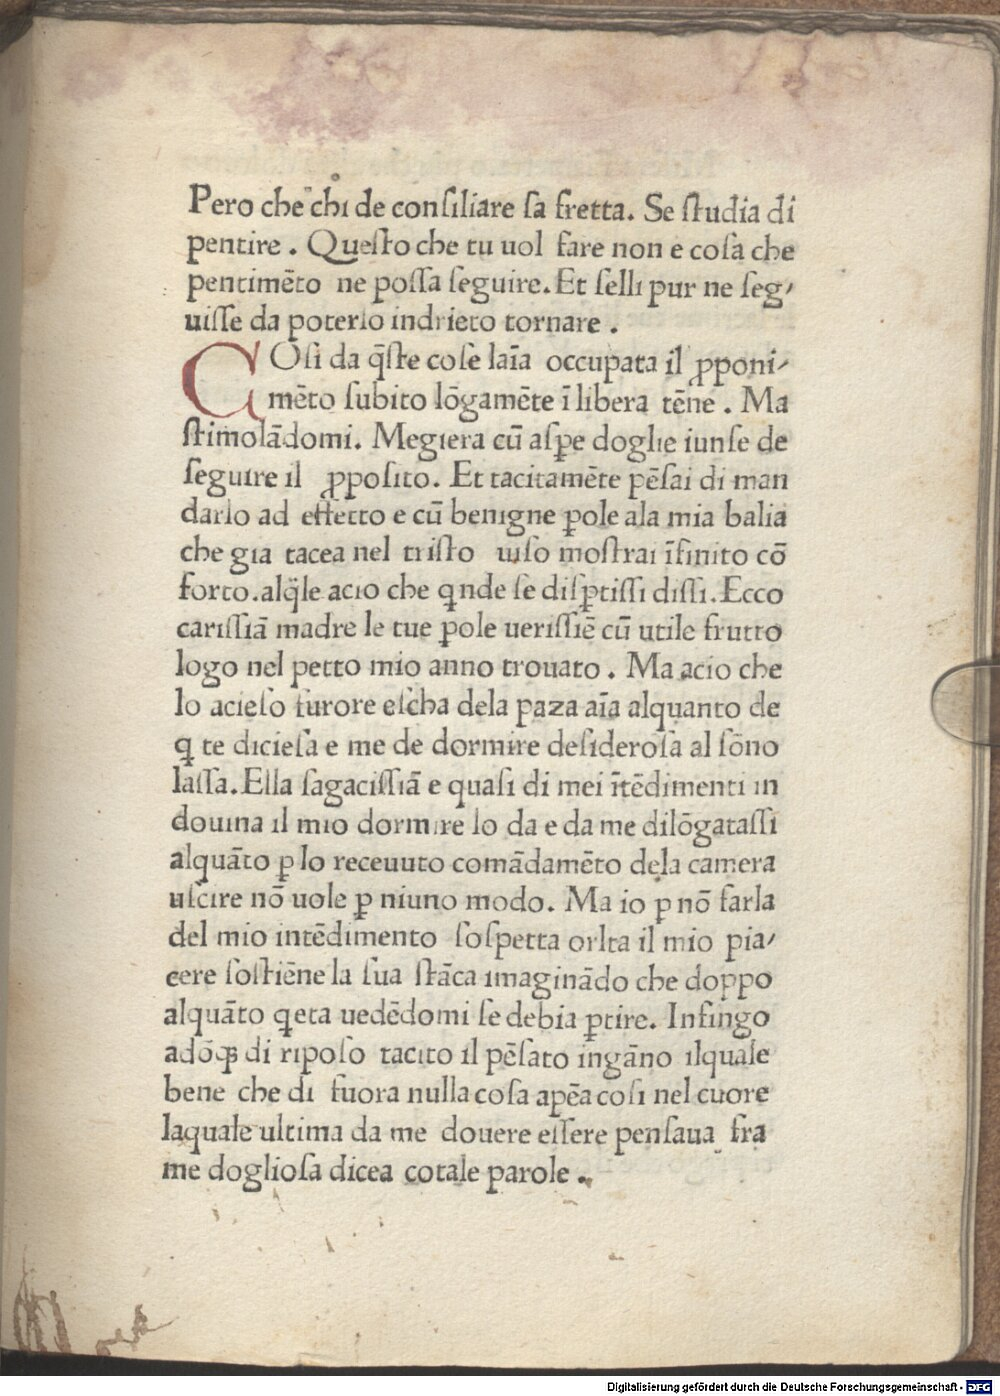 Pero che chi de conſiliare ſa fretta. Se ſtudia di
pentire . Queſto che tu uol fare non e coſa che
pentimēto ne poſſa ſeguire. Et ſelli pur ne ſeg⸗
uiſſe da poterlo indrieto tornare .
COſi da q̄ſte coſe laīa occupata il ꝓponi⸗
mēto ſubito lōgamēte ī libera tēne . Ma
ſtimolādomi. Megiera cū aſpe doglie iunſe de
ſeguire il ꝓpoſito. Et tacitamēte pēſai di man
darlo ad effetto e cū benigne ꝑole ala mia balia
che gia tacea nel triſto uiſo moſtrai īfinito cō
forto.alq̄le acio che qnde ſe diſꝑtiſſi diſſi. Ecco
cariſſiā madre le tue ꝑole ueriſſiē cū utile frutto
logo nel petto mio anno trouato . Ma acio che
lo acieſo furore eſcha dela paza aīa alquanto de
q te dicieſa e me de dormire deſideroſa al ſōno
laſſa. Ella ſagaciſſiā e quaſi di mei ītēdimenti in
douina il mio dormire lo da e da me dilōgataſſi
alquāto ꝑ lo receuuto comādamēto dela camera
uſcire nō uole ꝑ niuno modo. Ma io ꝑ nō farla
del mio intēdimento ſoſpetta orlta il mio pia⸗
cere ſoſtiēne la ſua ſtāca imaginādo che doppo
alquāto qeta uedēdomi ſe debia ꝑtire. Infingo
adōqꝫ di ripoſo tacito il pēſato ingāno ilquale
bene che di fuora nulla coſa apēa coſi nel cuore
laquale ultima da me douere eſſere penſaua fra
me doglioſa dicea cotale parole .
Digitalisierung gefördert durch die Deutsche Forschungsgemeinschaft - DFG